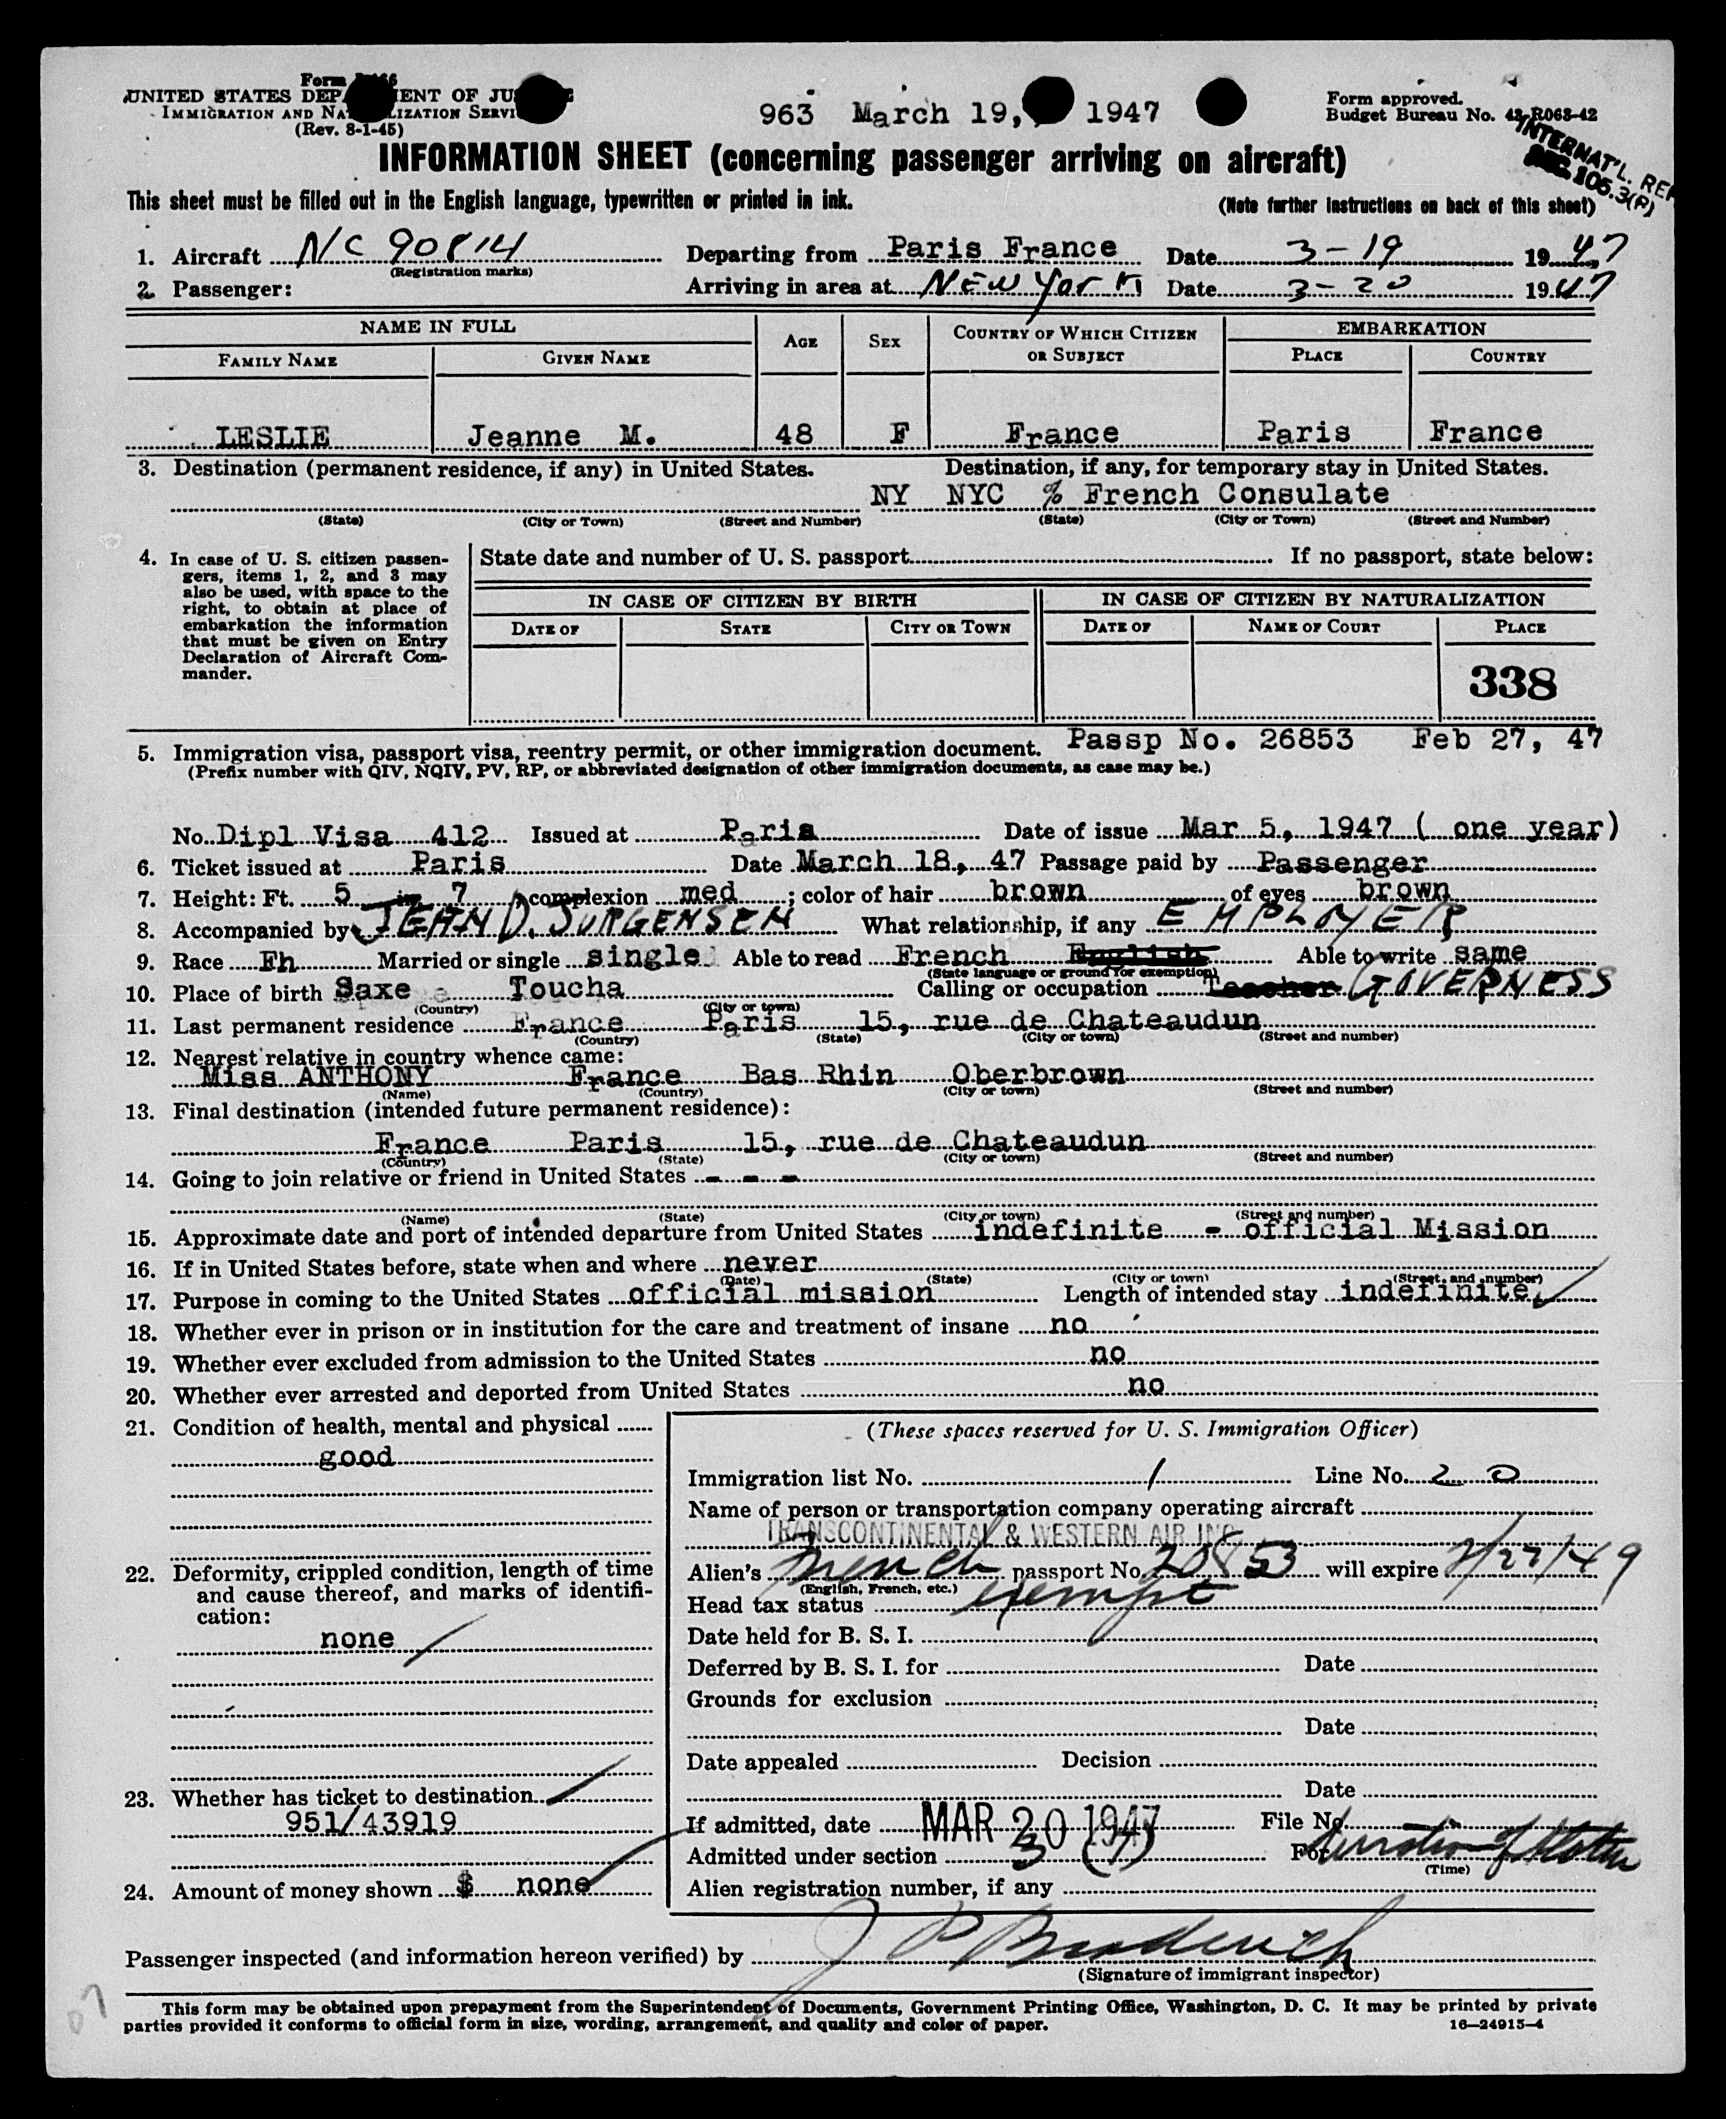 Form I-466
UNITED STATES DEPARTMENT OF JUSTICE
IMMIGRATION AND NATURALIZATION SERVICE
(Rev. 8-1-45)
963 March 19, 1947
Form approved.
Budget Bureau No. 43-R068-42
INTERNAT'L. REP
SEC. 105.3(P)
INFORMATION SHEET (concerning passenger arriving on aircraft)
This sheet must be filled out in the English language, typewritten or printed in ink.
(Note further instructions on back of this sheet)
1. Aircraft NC 90814 Departing from Paris France Date 3-19 1947
(Registration marks)
2. Passenger: Arriving in area at NEW York Date 3-20 1947
NAME IN FULL AGE SEX COUNTRY OF WHICH CITIZEN OR SUBJECT EMBARKATION
FAMILY NAME GIVEN NAME PLACE COUNTRY
LESLIE Jeanne M. 48 F France Paris France
3. Destination (permanent residence, if any) in United States. Destination, if any, for temporary stay in United States.
NY NYC % French Consulate
(State) (City or Town) (Street and Number) (State) (City or Town) (Street and Number)
4. In case of U. S. citizen passen-
gers, items 1, 2, and 3 may
also be used, with space to the
right, to obtain at place of
embarkation the information
that must be given on Entry
Declaration of Aircraft Com-
mander.
State date and number of U. S. passport If no passport, state below:
IN CASE OF CITIZEN BY BIRTH IN CASE OF CITIZEN BY NATURALIZATION
DATE OF STATE CITY OR TOWN DATE OF NAME OF COURT PLACE
338
5. Immigration visa, passport visa, reentry permit, or other immigration document. Passp No. 26853 Feb 27, 47
(Prefix number with QIV, NQIV, PV, RP, or abbreviated designation of other immigration documents, as case may be.)
No. Dipl Visa 412 Issued at Paris Date of issue Mar 5, 1947 ( one year)
6. Ticket issued at Paris Date March 18, 47 Passage paid by Passenger
7. Height: Ft. 5 in. 7 ; complexion med ; color of hair brown of eyes brown
8. Accompanied by JEAN D. JURGENSEN What relationship, if any EMPLOYER
9. Race Fh Married or single single Able to read French English Able to write same
(State language or ground for exemption)
10. Place of birth Saxe Toucha Calling or occupation Teacher GOVERNESS
(Country) (City or town)
11. Last permanent residence France Paris 15, rue de Chateaudun
(Country) (State) (City or town) (Street and number)
12. Nearest relative in country whence came:
Miss ANTHONY France Bas Rhin Oberbrown
(Name) (Country) (City or town) (Street and number)
13. Final destination (intended future permanent residence):
France Paris 15, rue de Chateaudun
(Country) (State) (City or town) (Street and number)
14. Going to join relative or friend in United States - - -
(Name) (State) (City or town) (Street and number)
15. Approximate date and port of intended departure from United States indefinite - official Mission
16. If in United States before, state when and where never
(Date) (State) (City or town) (Street and number)
17. Purpose in coming to the United States official mission Length of intended stay indefinite
18. Whether ever in prison or in institution for the care and treatment of insane no
19. Whether ever excluded from admission to the United States no
20. Whether ever arrested and deported from United States no
21. Condition of health, mental and physical
good
22. Deformity, crippled condition, length of time
and cause thereof, and marks of identifi-
cation:
none
23. Whether has ticket to destination
951/43919
24. Amount of money shown $ none
(These spaces reserved for U. S. Immigration Officer)
Immigration list No. 1 Line No. 20
Name of person or transportation company operating aircraft
TRANSCONTINENTAL & WESTERN AIR INC
Alien's French passport No. 20853 will expire 2/27/49
(English, French, etc.)
Head tax status exempt
Date held for B. S. I.
Deferred by B. S. I. for Date
Grounds for exclusion
Date
Date appealed Decision
Date
If admitted, date MAR 20 1947 File No.
Admitted under section 3 (7) For duration of status
(Time)
Alien registration number, if any
Passenger inspected (and information hereon verified) by J P Broderick
(Signature of immigrant inspector)
This form may be obtained upon prepayment from the Superintendent of Documents, Government Printing Office, Washington, D. C. It may be printed by private
parties provided it conforms to official form in size, wording, arrangement, and quality and color of paper.
16—24915-4